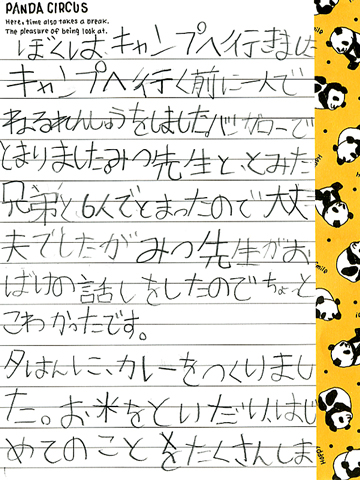 PANDA CIRCUS
Here, time also takes a break.
The pleasure of being look at.
ぼくは、キャンプへ行きました
キャンプへ行く前に一人で
ねるれんしゅうをしました。バンガローで
とまりました。みつ先生と、とみた
兄弟と6人でとまったので大丈
夫でしたがみつ先生がお
ばけの話しをしたのでちょっと
こわかったです。
夕はんに、カレーをつくりまし
た。お米をといだり、はじ
めてのことをたくさんしま